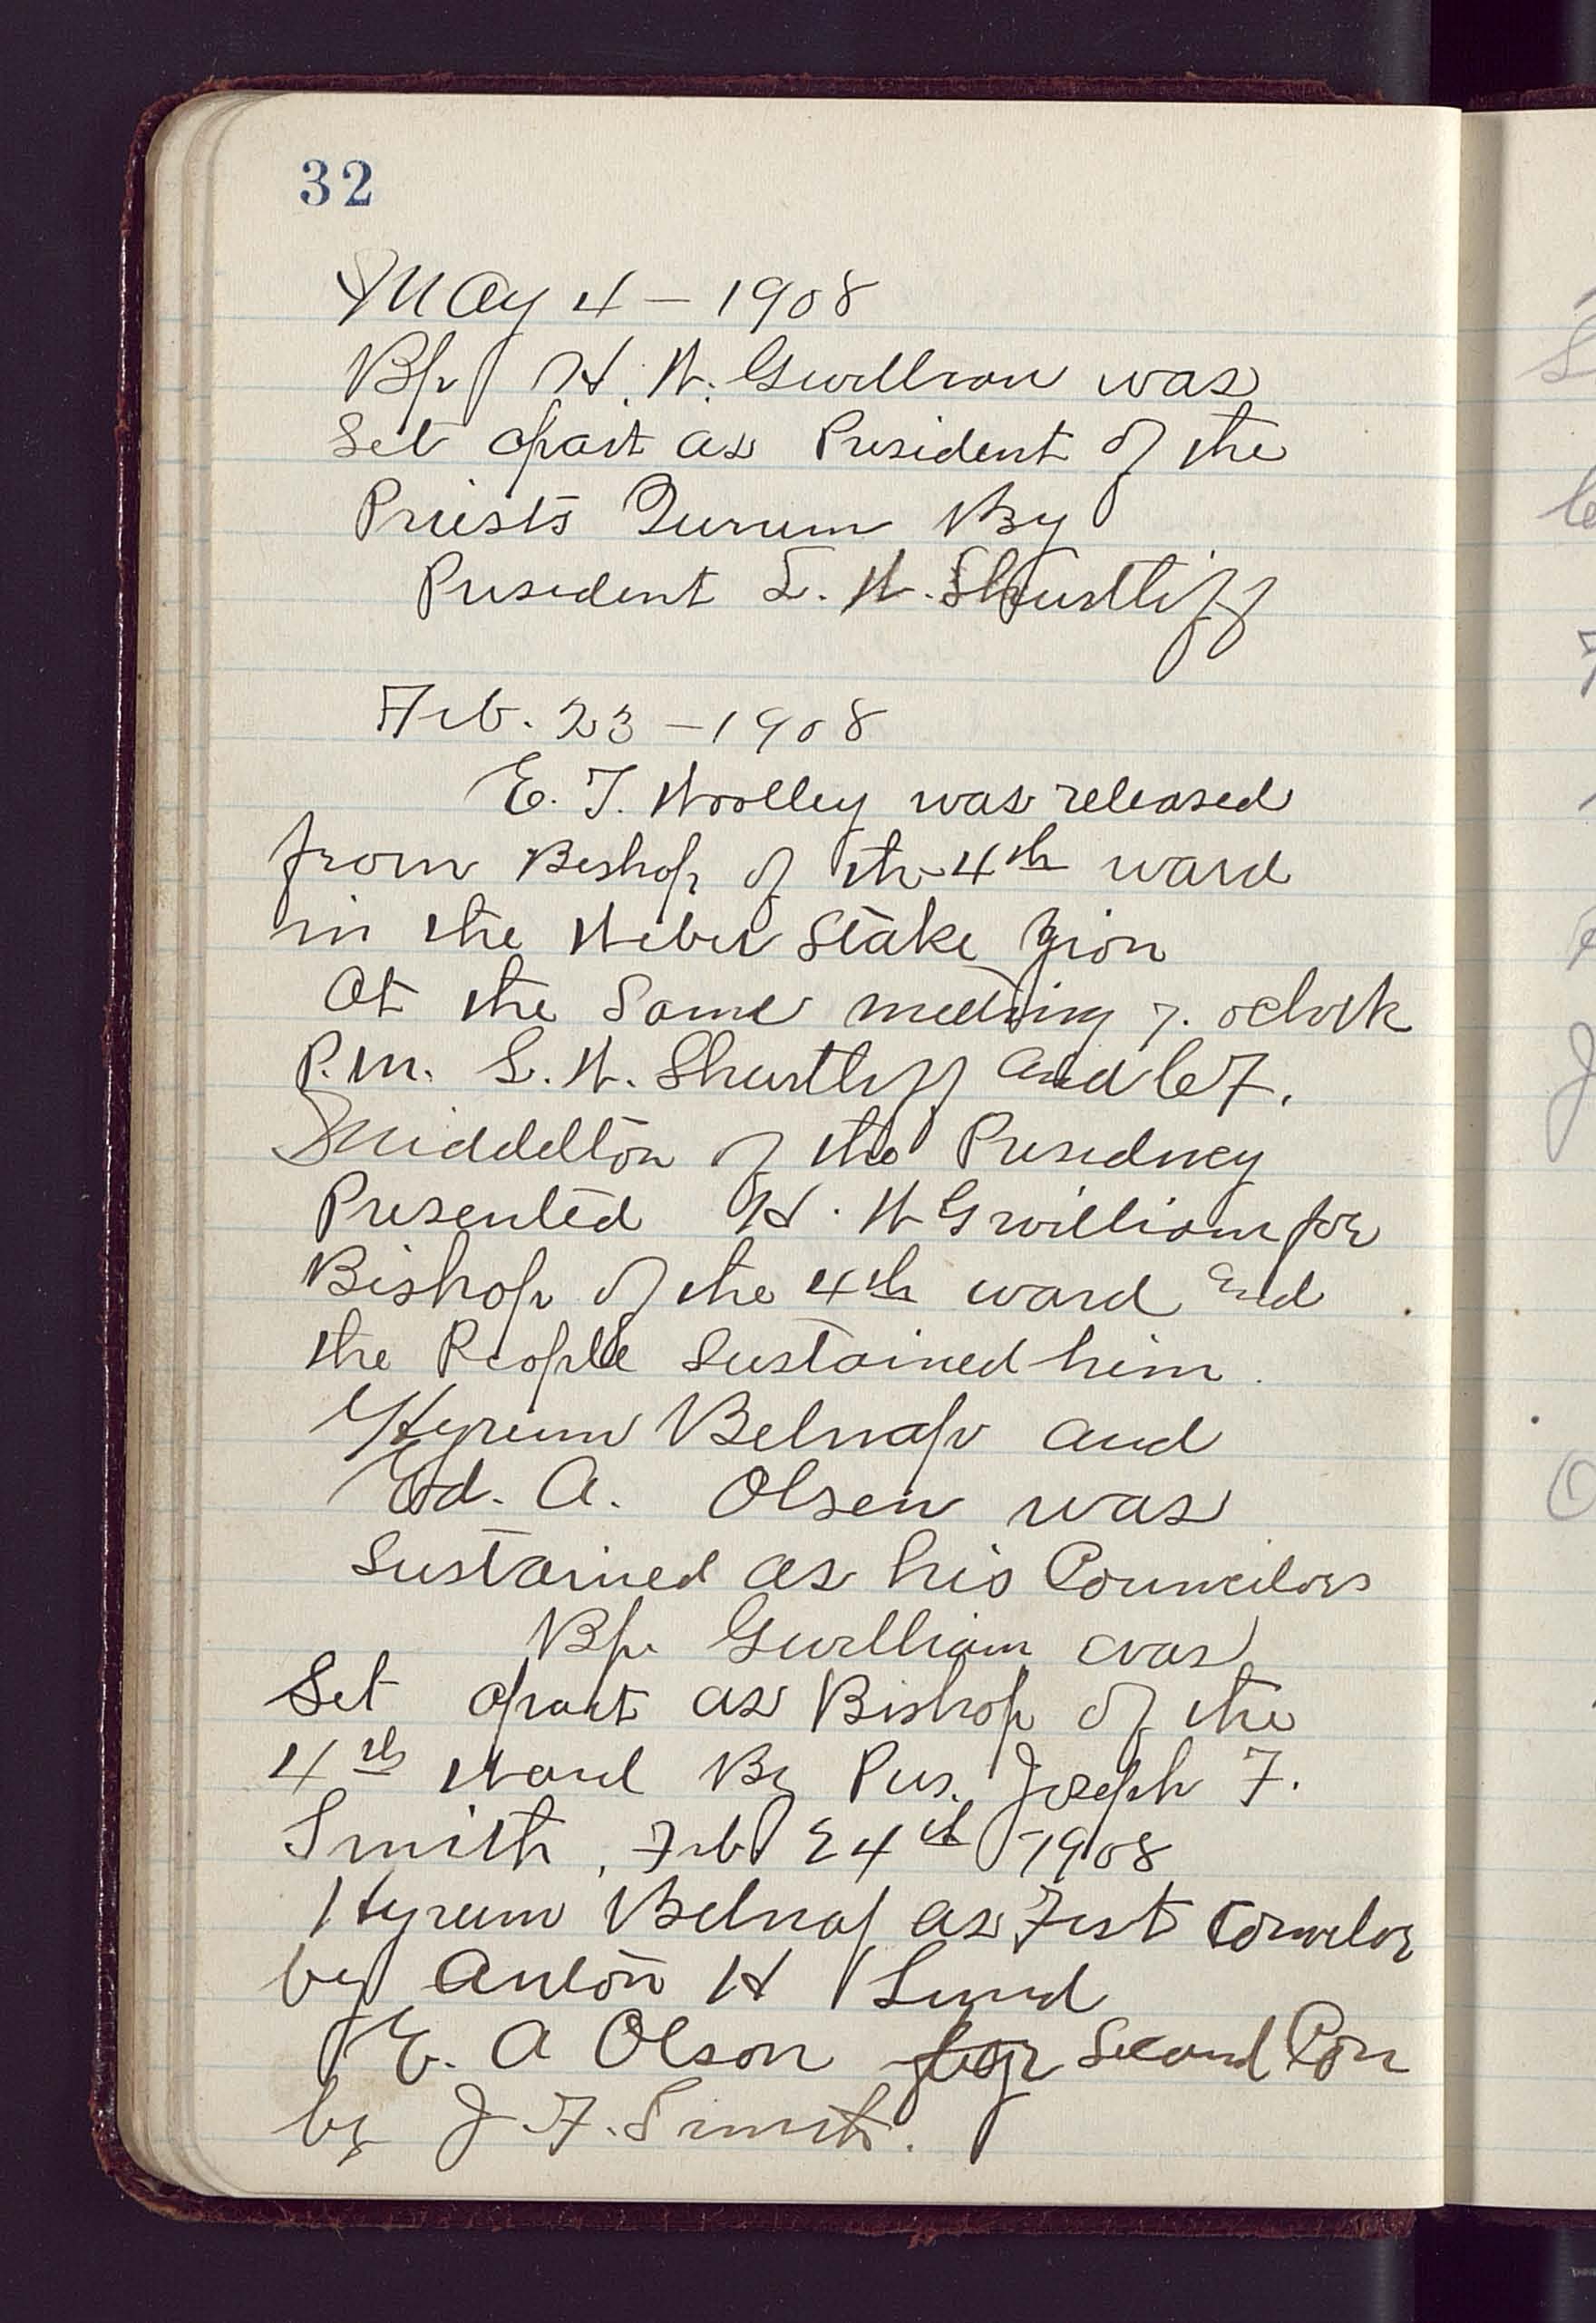 32
May 4 - 1908
Bp H. W. Gwilliam was
Set apart as President of the
Priests Qurum By
President L. W. Shurtliff
Feb. 23 - 1908
E. T. Woolley was released
from Bishop of the 4th ward
in the Weber Stake Zion
At the Same meeting 7. oclock
P.m. L. W. Shurtliff and C F.
Middelton of the Presidncy
Presented H. W Gwilliam for
Bishop of the 4th ward and
the People Sustained him.
Hyrum Belnap and
Ed. A. Olsen was
Sustained as his Councilors
Bp. Gwilliam was
Set apart as Bishop of the
4th Ward By Pres. Joseph F.
Smith, Feb 24th 1908
Hyrum Belnap as First Councilor
by Anton H Lund
E. A Olson for Second Con
by J. F. Smith.